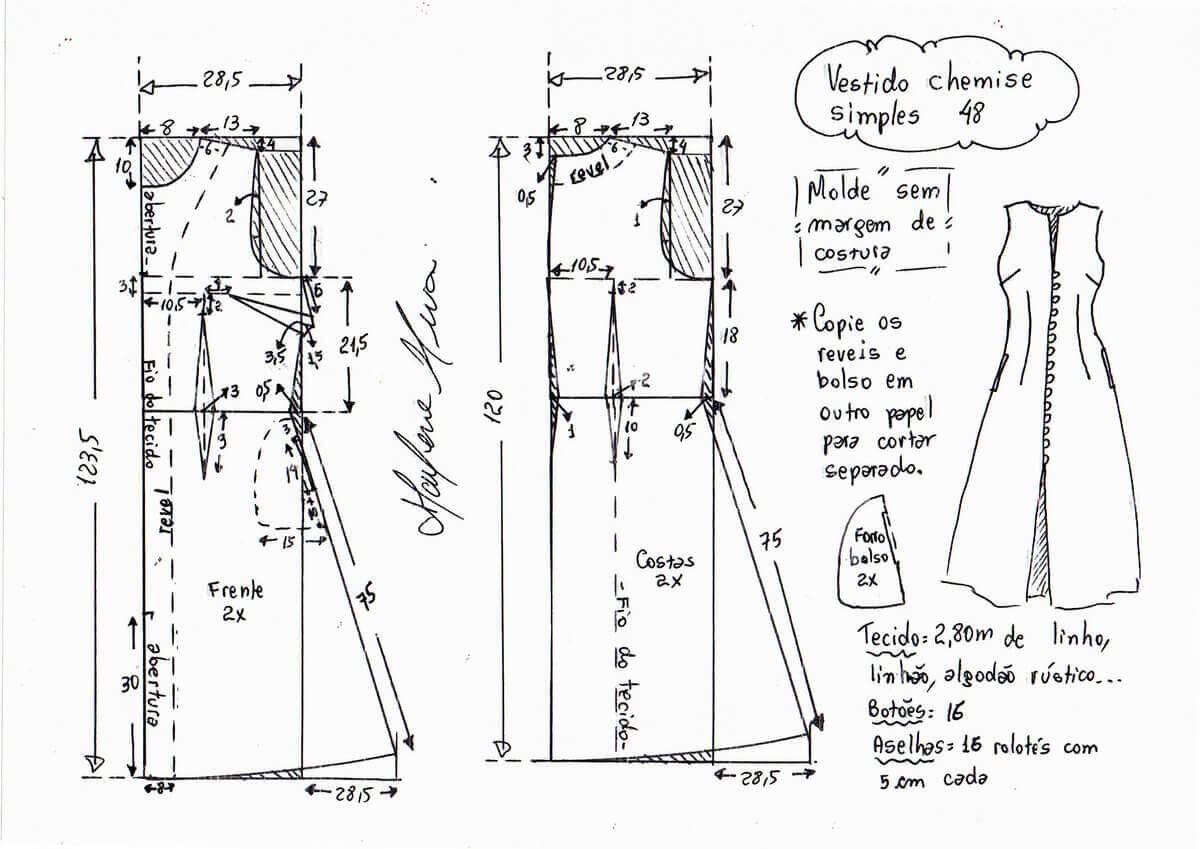 28,5
8
13
6
4
10
abertura
2
27
3
10,5
4
2
6
3,5
1,5
21,5
3
0,5
Fio do tecido
9
3
14
15
123,5
revel
Frente
2x
75
30
abertura
8
28,5
28,5
8
13
3
6
4
revel
0,5
1
27
10,5
2
18
2
1
10
0,5
120
Costas
2x
75
Fio do tecido
28,5
Vestido chemise
simples 48
Molde sem
margem de
costura
* Copie os
reveis e
bolso em
outro papel
para cortar
separado.
Forro
bolso
2x
Tecido: 2,80m de linho,
linhão, algodão rústico...
Botões: 16
Aselhas: 16 rolotés com
5 cm cada